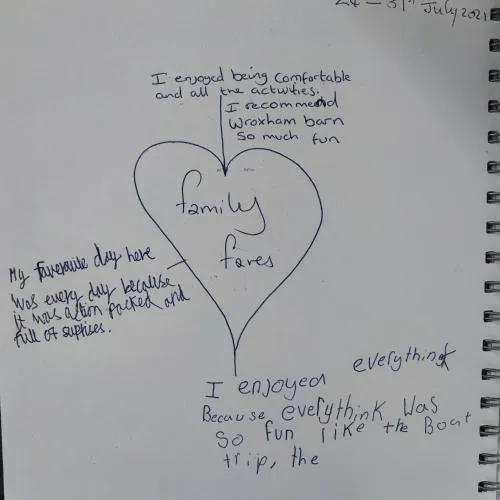 24 - 31st July 2021
I enjoyed being comfortable
and all the activities.
I recommend
Wroxham barn
so much fun
family
fares
My faveroute day here
was every day because
it was action packed and
full of suprises.
I enjoyed everythink
Because everythink was
so fun like the Boat
trip, the